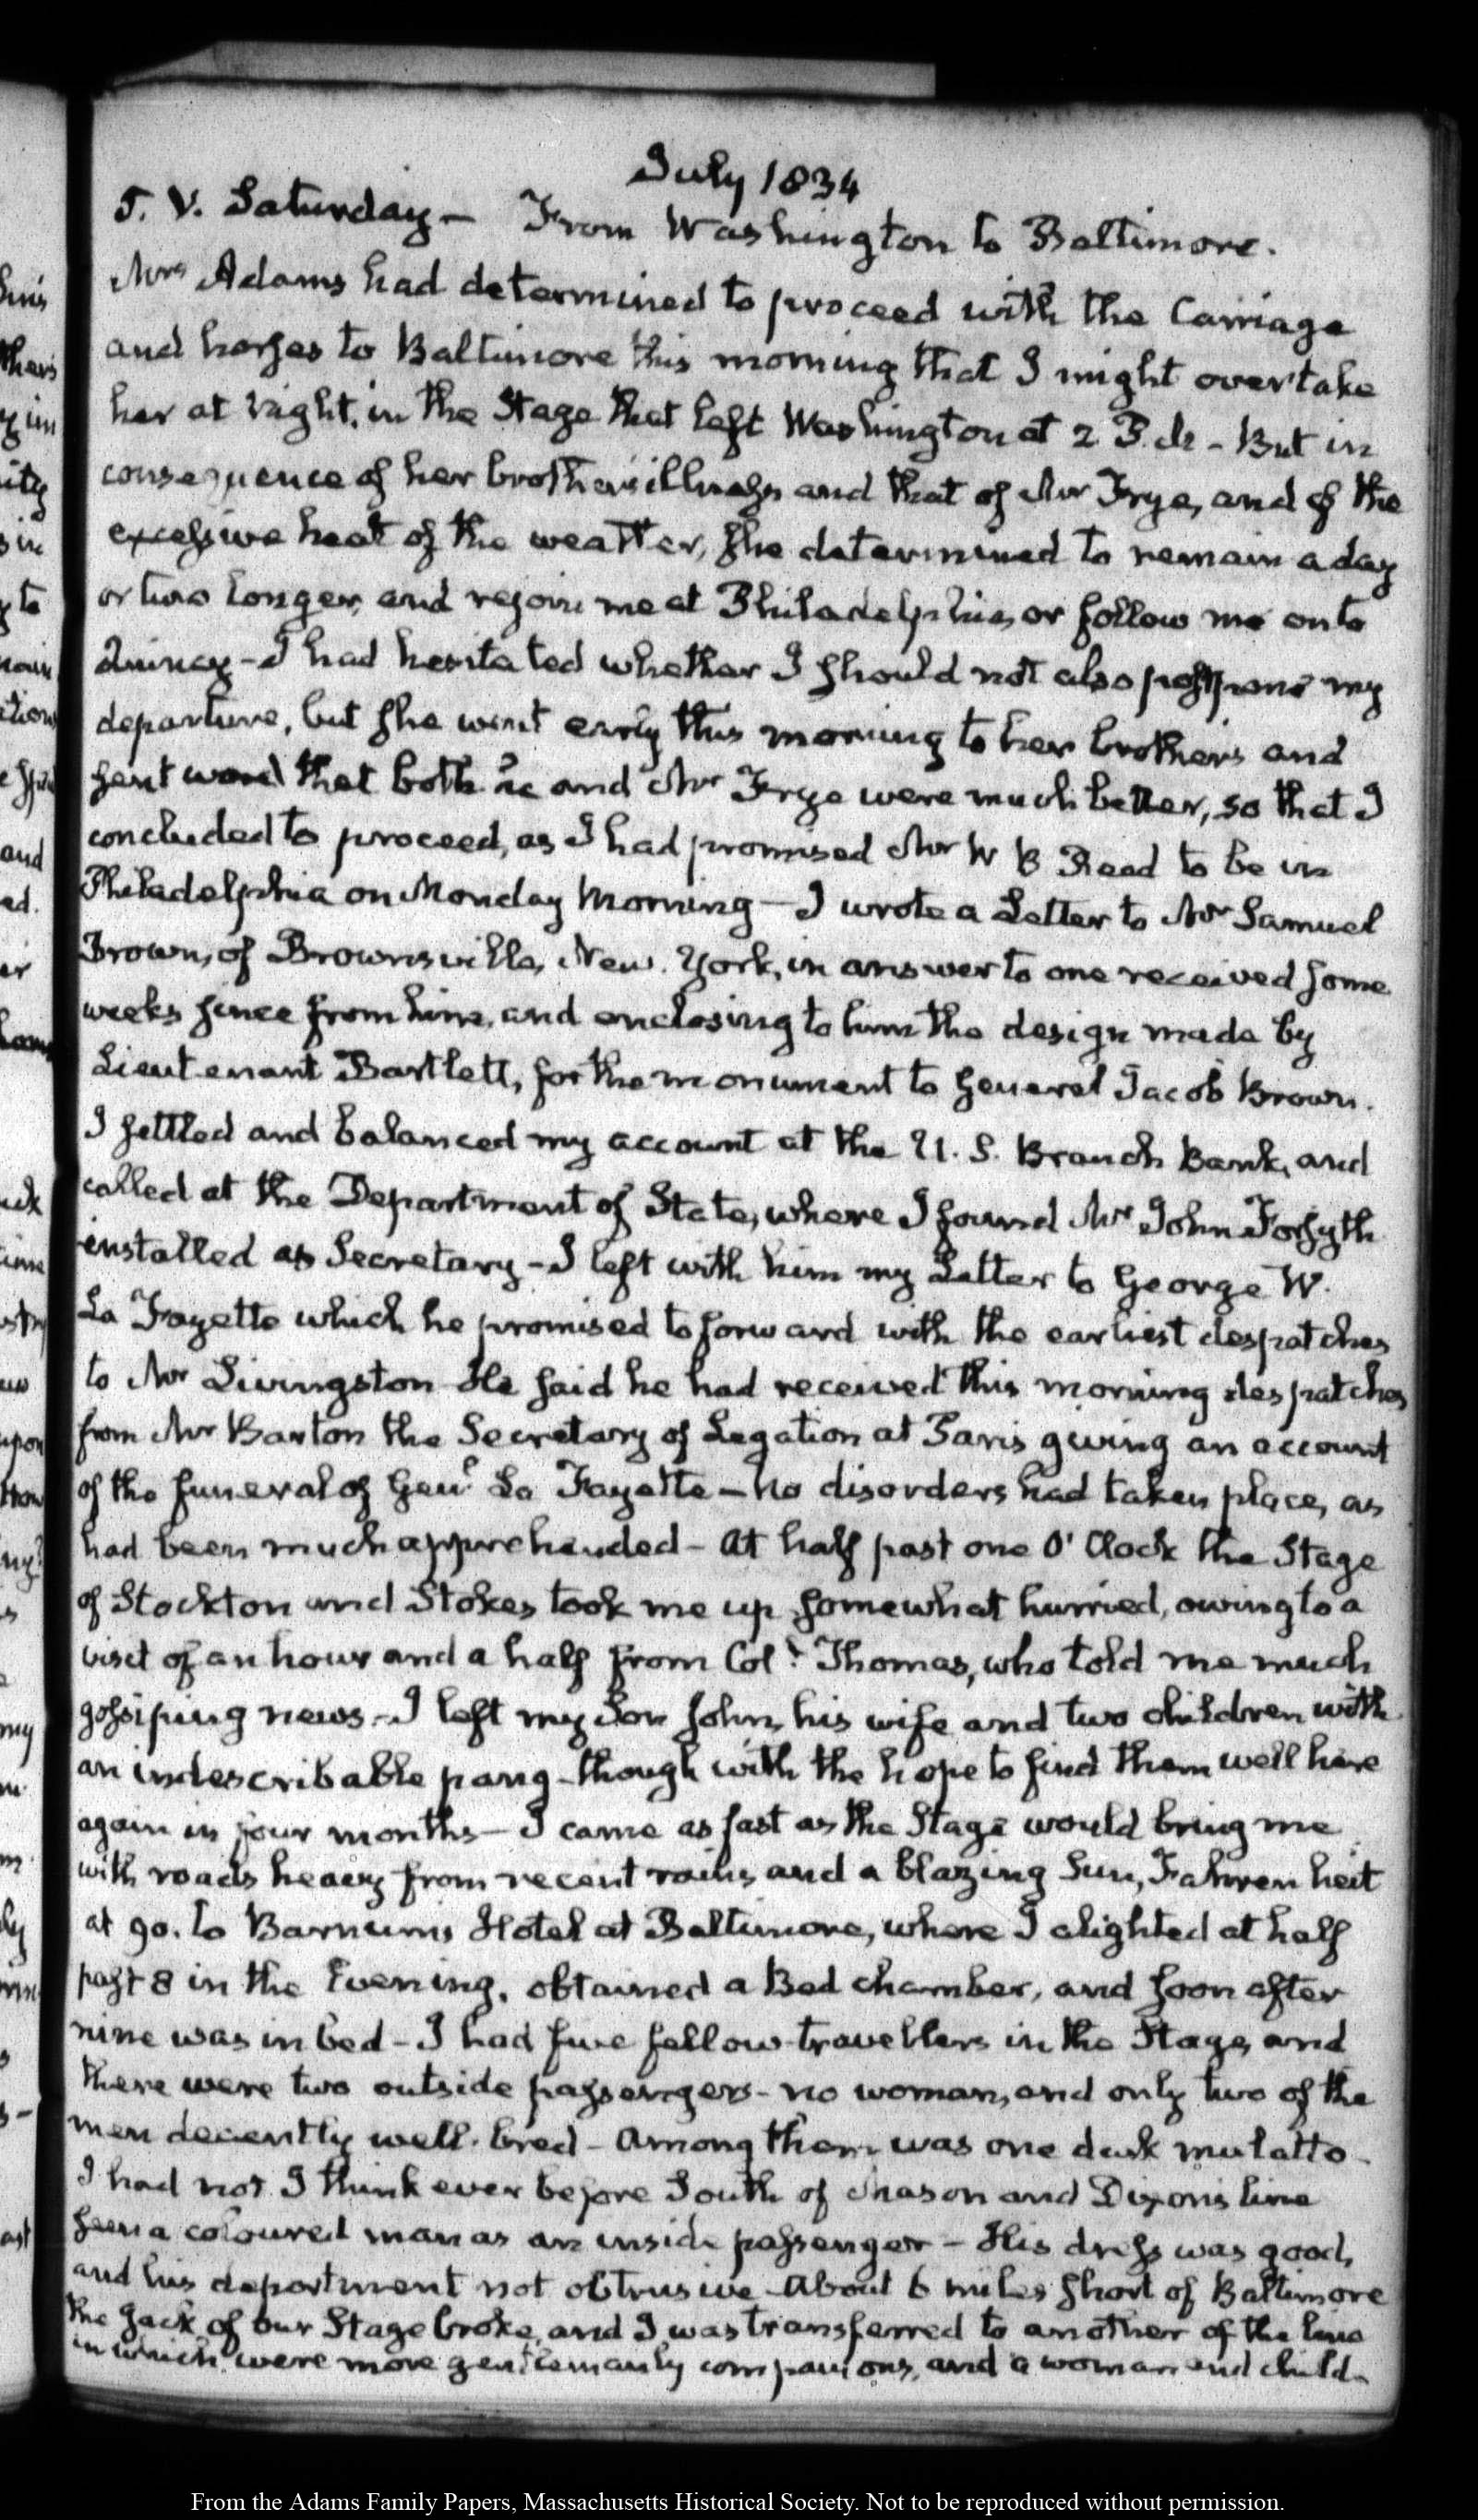 July 1834
5. V. Saturday — From Washington to Baltimore.
Mrs Adams had determined to proceed with the Carriage
and horses to Baltimore this morning that I might overtake
her at Night, in the Stage that left Washington at 2 P.M. - But in
consequence of her brother's illness and that of Mr Frye, and of the
excessive heat of the weather, she determined to remain a day
or two longer, and rejoin me at Philadelphia, or follow me on to
Quincy - I had hesitated whether I should not also postpone my
departure, but she went early this morning to her brother's and
sent word that both he and Mr Frye were much better, so that I
concluded to proceed, as I had promised Mr W B Read to be in
Philadelphia on Monday Morning — I wrote a Letter to Mr Samuel
Brown, of Brownsville, New. York, in answer to one received some
weeks since from him, and enclosing to him the design made by
Lieutenant Bartlett, for the monument to General Jacob Brown.
I settled and balanced my account at the U. S. Branch Bank, and
called at the Department of State, where I found Mr John Forsyth
installed as Secretary - I left with him my Letter to George W.
La Fayette which he promised to forward with the earliest despatches
to Mr Livingston - He said he had received this morning despatches
from Mr Barton the Secretary of Legation at Paris giving an account
of the funeral of Genl La Fayette — No disorders had taken place, as
had been much apprehended - At half past one O' Clock the Stage
of Stockton and Stokes took me up somewhat hurried, owing to a
visit of an hour and a half from Coll Thomas, who told me much
gossiping news - I left my Son John, his wife and two children with
an indescribable pang - though with the hope to find them well here
again in four months — I came as fast as the Stage would bring me
with roads heavy from recent rains and a blazing Sun, Fahrenheit
at 90. to Barnum's Hotel at Baltimore, where I alighted at half
past 8 in the Evening, obtained a Bed chamber, and soon after
nine was in bed - I had five fellow-travellers in the Stage, and
there were two outside passengers - no woman, and only two of the
men decently well-bred - Among them was one dark mulatto -
I had not I think ever before South of Mason and Dixon's line
seen a coloured man as an inside passenger - His dress was good,
and his deportment not obtrusive - About 6 miles short of Baltimore
the Jack of our Stage broke, and I was transferred to another of the line
in which were more gentlemanly companions, and a woman and child -
From the Adams Family Papers, Massachusetts Historical Society. Not to be reproduced without permission.